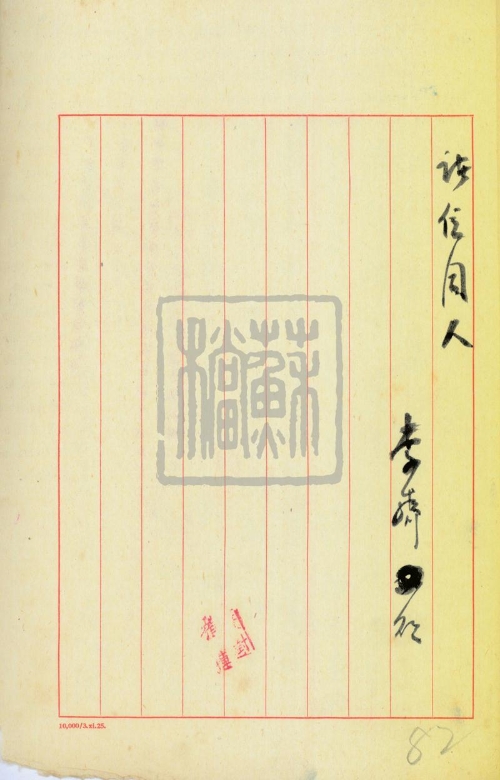 諸位同人
李濟
蘇檔
10,000/3.xi.25.
82